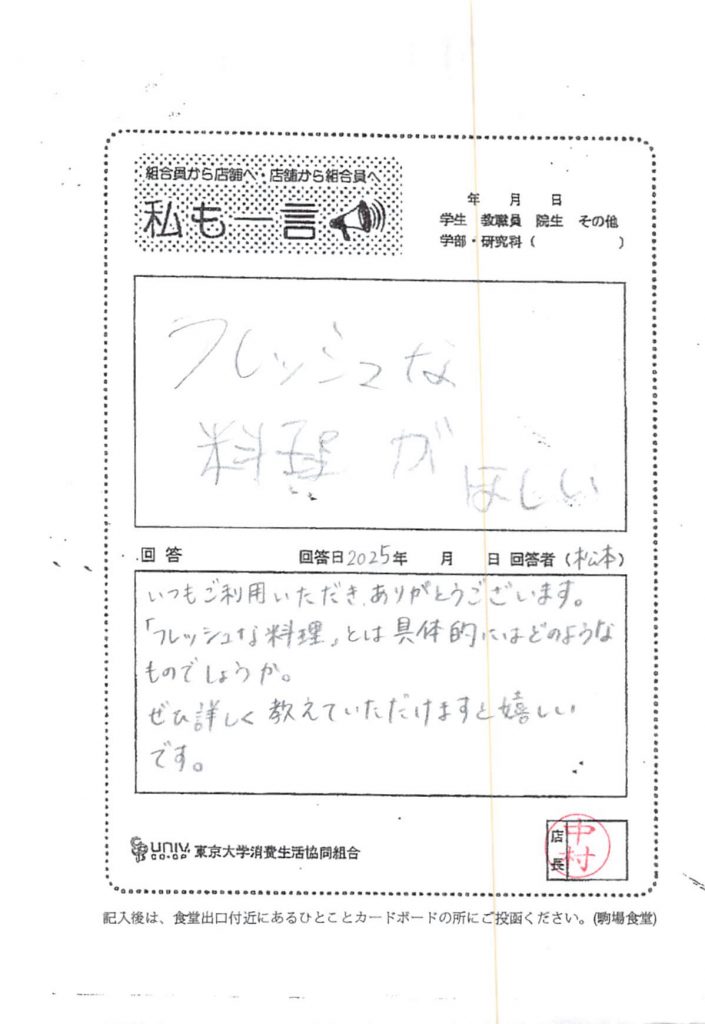 組合員から店舗へ・店舗から組合員へ
私も一言
年 月 日
学生 教職員 院生 その他
学部・研究科( )
フレッシュな
料理が
ほしい
回答 回答日2025年 月 日 回答者(松本)
いつもご利用いただき、ありがとうございます。
「フレッシュな料理」とは具体的にはどのような
ものでしょうか。
ぜひ詳しく教えていただけますと嬉しい
です。
UNIV. CO-OP 東京大学消費生活協同組合
店長 中村
記入後は、食堂出口付近にあるひとことカードボードの所にご投函ください。(駒場食堂)